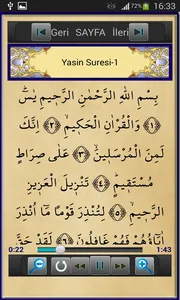 16:33
Geri SAYFA İleri
Yasin Suresi-1
بِسْمِ اللّٰهِ الرَّحْمٰنِ الرَّحِيمِ يٰسٓ
﴿١﴾ وَالْقُرْاٰنِ الْحَكِيمِ ﴿٢﴾ اِنَّكَ
لَمِنَ الْمُرْسَلِينَ ﴿٣﴾ عَلٰى صِرَاطٍ
مُسْتَقِيمٍ ﴿٤﴾ تَنْزِيلَ الْعَزِيزِ
الرَّحِيمِ ﴿٥﴾ لِتُنْذِرَ قَوْمًا مَٓا اُنْذِرَ
اٰبَٓاؤُ۬هُمْ فَهُمْ غَافِلُونَ ﴿٦﴾ لَقَدْ حَقَّ
0:22
1:43